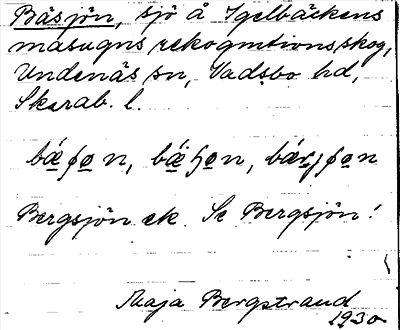 Bäsjön, sjö å Igelbäckens
masugns rekognitions skog,
Undenäs sn, Vadsbo hd,
Skarab. l.
Bergsjön ek. Se Bergsjön!
Maja Bergstrand
1930